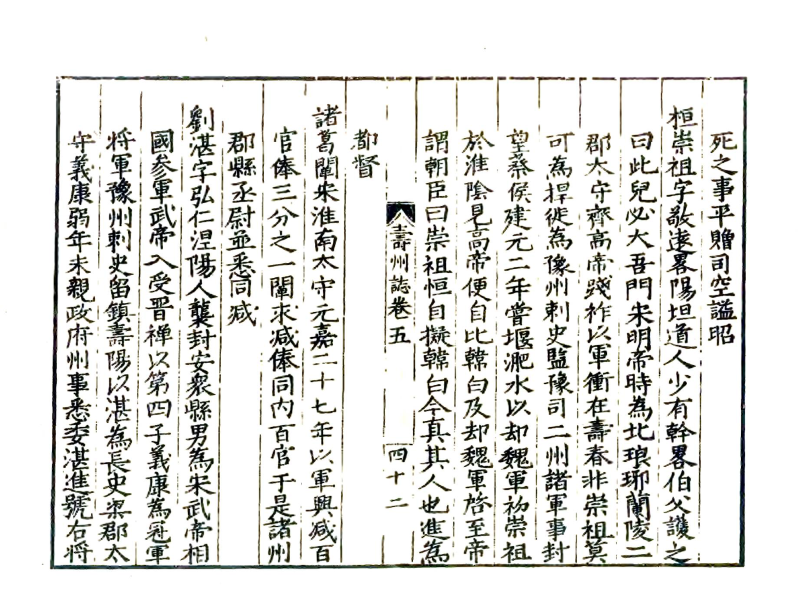 死之事平贈司空謚昭
桓崇祖字敬遠畧陽坦道人少有幹畧伯父護之
曰此兒必大吾門宋明帝時為北琅琊蘭陵二
郡太守齊高帝踐祚以軍衝在壽春非崇祖莫
可為捍徙為豫州刺史監豫司二州諸軍事封
望蔡侯建元二年嘗堰淝水以却魏軍初崇祖
於淮陰見高帝便自比韓白及却魏軍啓至帝
謂朝臣曰崇祖恒自擬韓白今真其人也進為
都督
壽州誌卷五
四十二
諸葛闡宋淮南太守元嘉二十七年以軍興减百
官俸三分之一闡求减俸同內百官于是諸州
郡縣丞尉並悉同减
劉湛字弘仁涅陽人襲封安衆縣男為宋武帝相
國參軍武帝入受晋禪以第四子義康為冠軍
將軍豫州刺史留鎮壽陽以湛為長史梁郡太
守義康弱年未親政府州事悉委湛進號右將